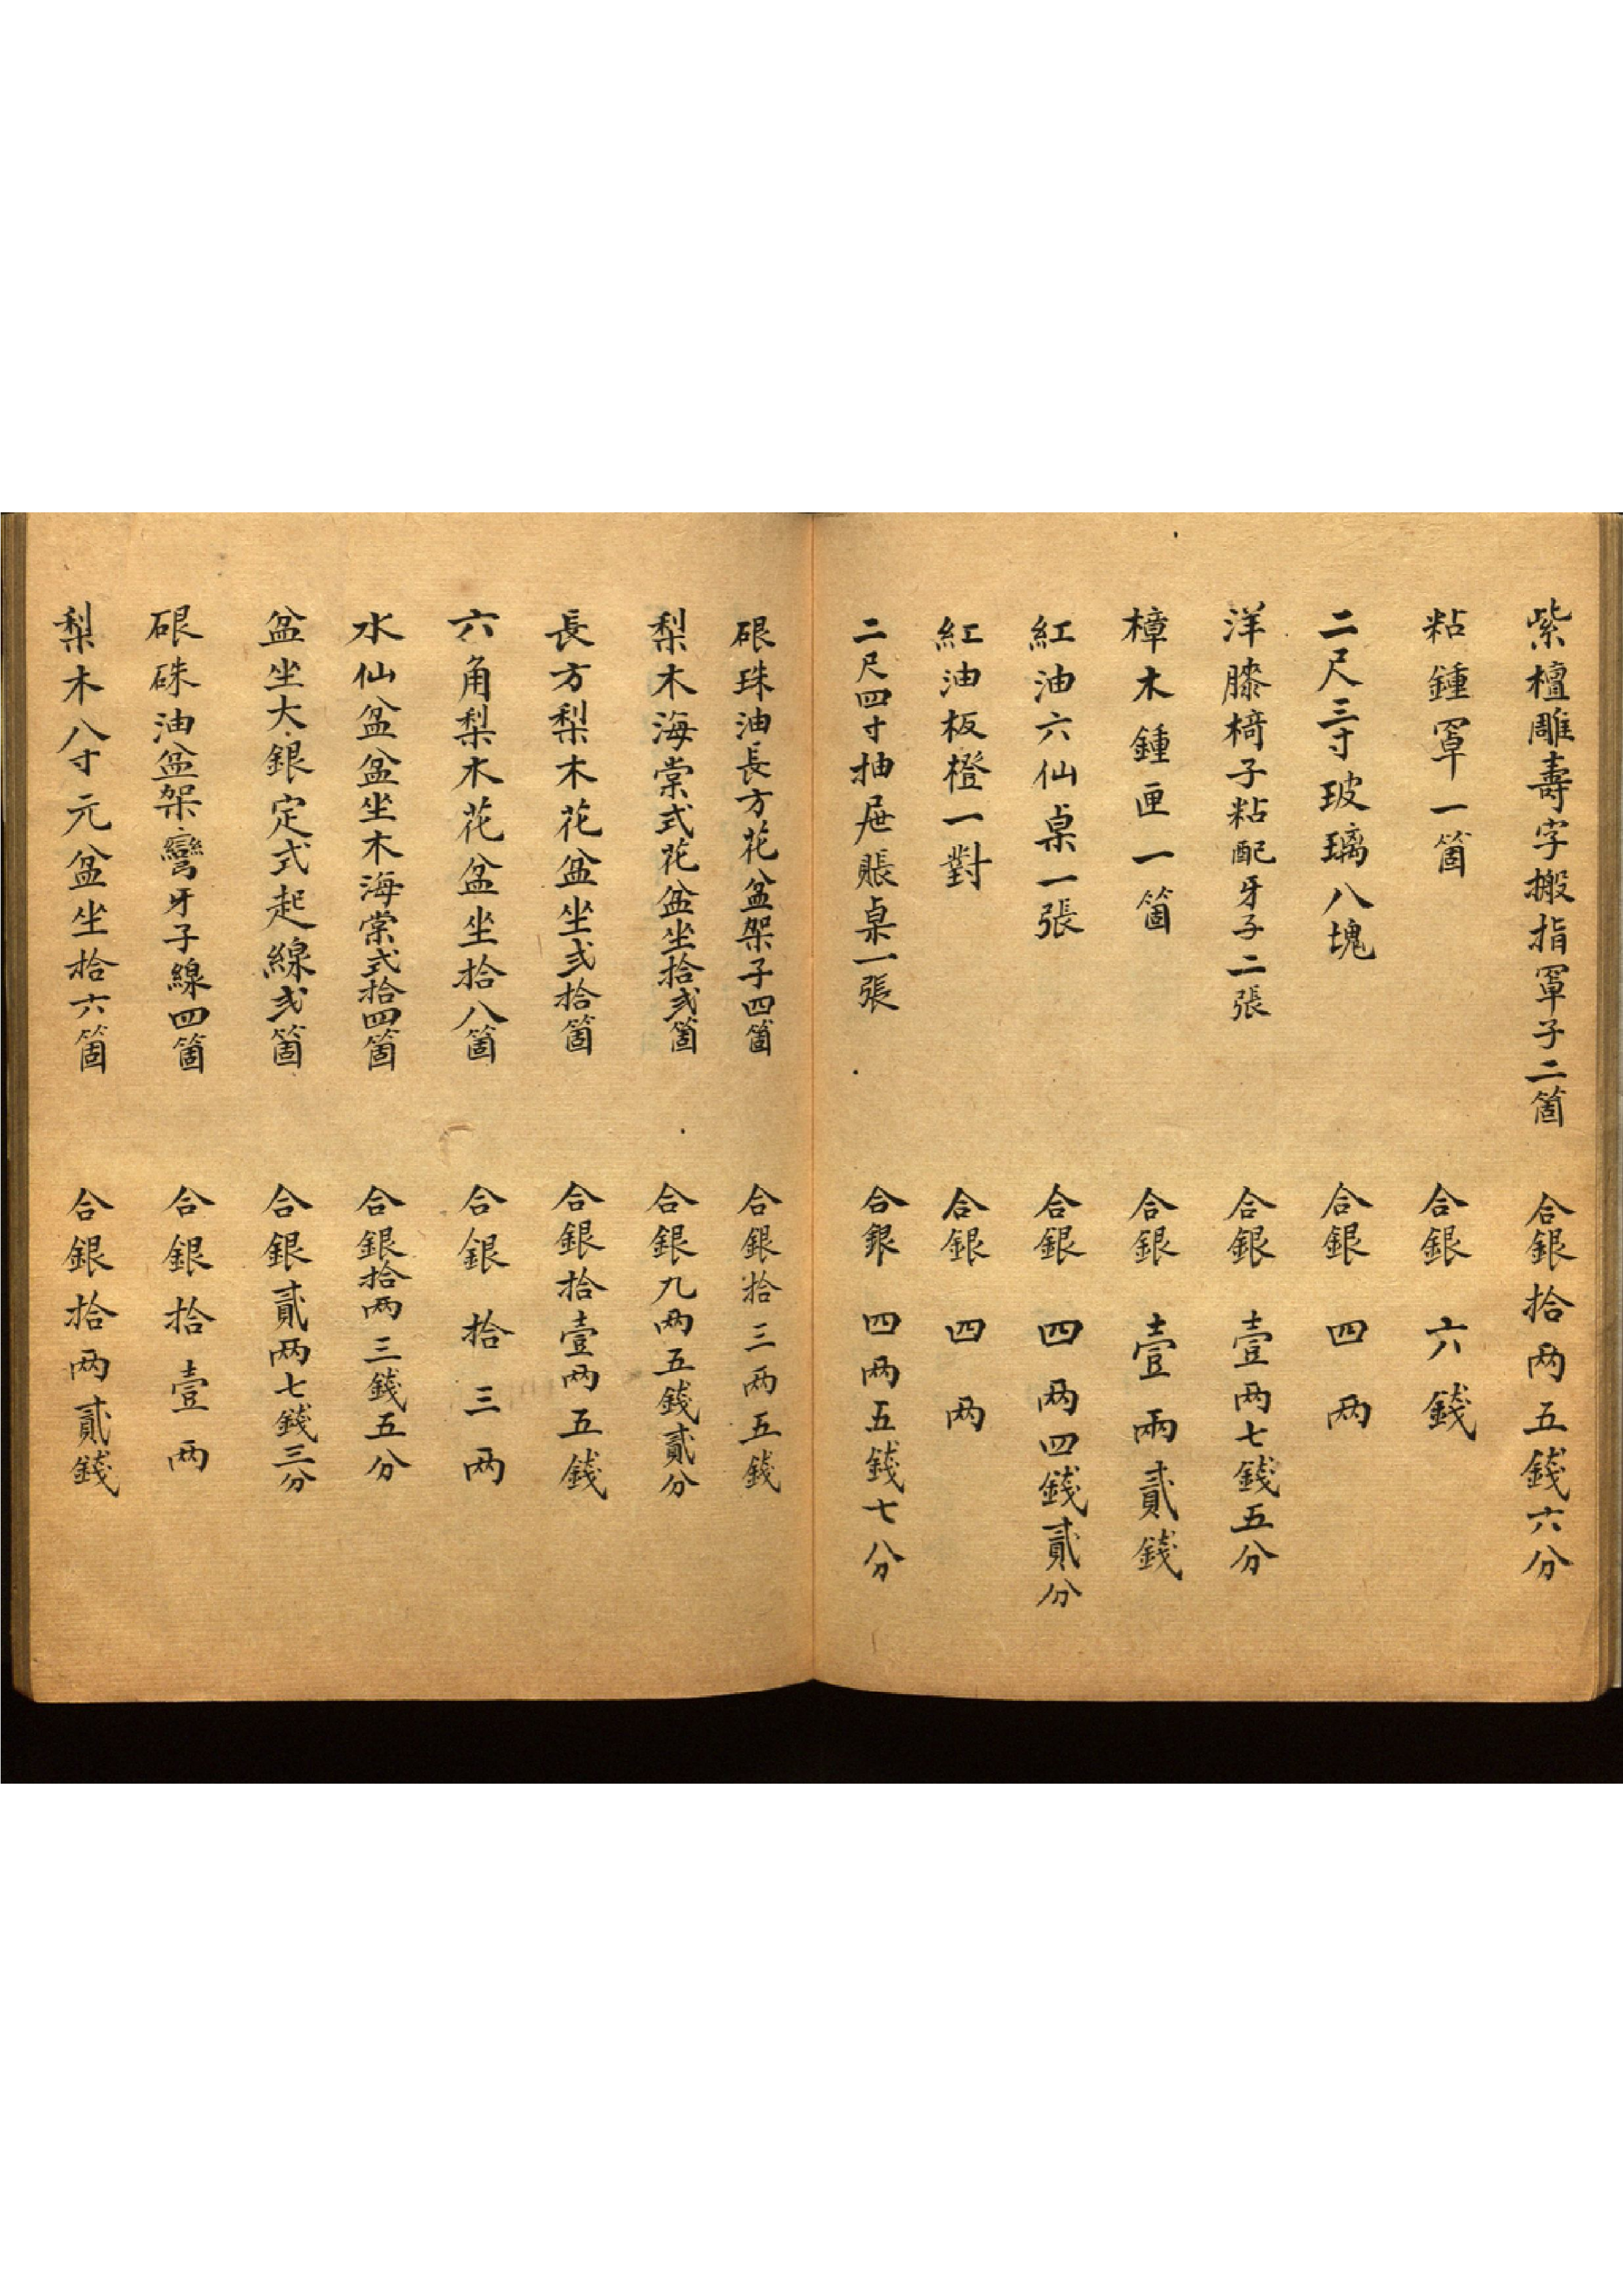 紫檀雕壽字搬指罩子二箇 合銀拾两五錢六分
粘鍾罩一箇 合銀六錢
二尺三寸玻璃八塊 合銀四两
洋膝椅子粘配牙子二張 合銀壹两七錢五分
樟木鍾匣一箇 合銀壹兩貳錢
紅油六仙桌一張 合銀四两四錢貳分
紅油板橙一對 合銀四两
二尺四寸抽屉賬桌一張 合銀四两五錢七分
硍珠油長方花盆架子四箇 合銀拾三两五錢
梨木海棠式花盆坐拾弍箇 合銀九两五錢貳分
長方梨木花盆坐弍拾箇 合銀拾壹两五錢
六角梨木花盆坐拾八箇 合銀拾三两
水仙盆盆坐木海棠式拾四箇 合銀拾两三錢五分
盆坐大銀定式起線弍箇 合銀貳两七錢三分
硍硃油盆架彎牙子線四箇 合銀拾壹两
梨木八寸元盆坐拾六箇 合銀拾两貳錢